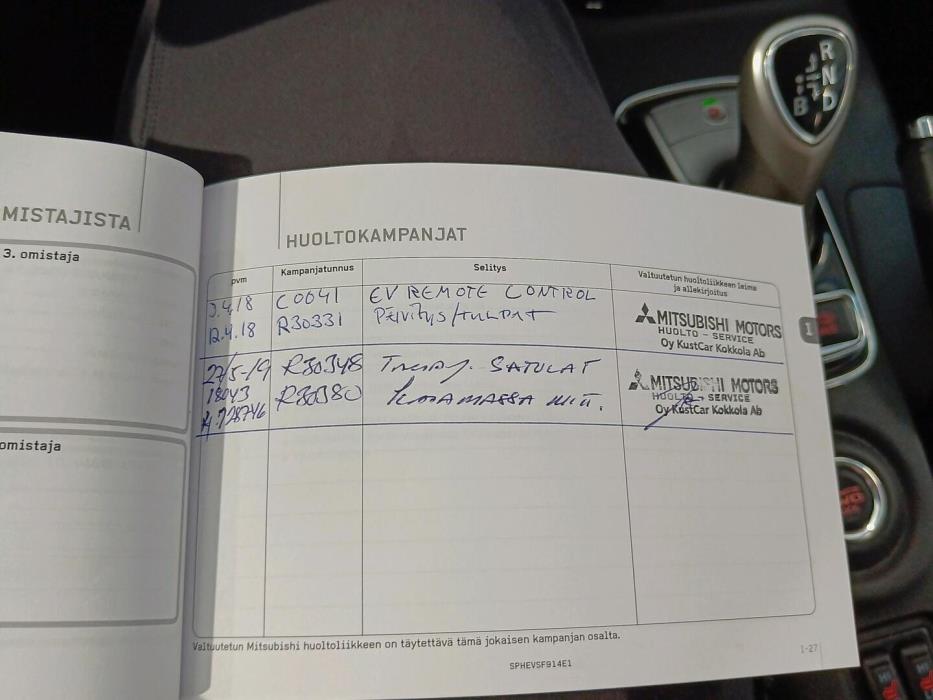 MISTAJISTA
3. omistaja
omistaja
HUOLTOKAMPANJAT
pvm Kampanjatunnus Selitys Valtuutetun huoltoliikkeen leima
ja allekirjoitus
3.4.18 C0041 EV REMOTE CONTROL
12.4.18 R30331 PÄIVITYS/TULPAT
MITSUBISHI MOTORS
HUOLTO - SERVICE
Oy KustCar Kokkola Ab
27/5-19 R30348 SATULAT
18043 R30380
728746
MITSUBISHI MOTORS
HUOLTO - SERVICE
Oy KustCar Kokkola Ab
Valtuutetun Mitsubishi huoltoliikkeen on täytettävä tämä jokaisen kampanjan osalta.
1-27
SPHEVSF914E1
R
N
B D